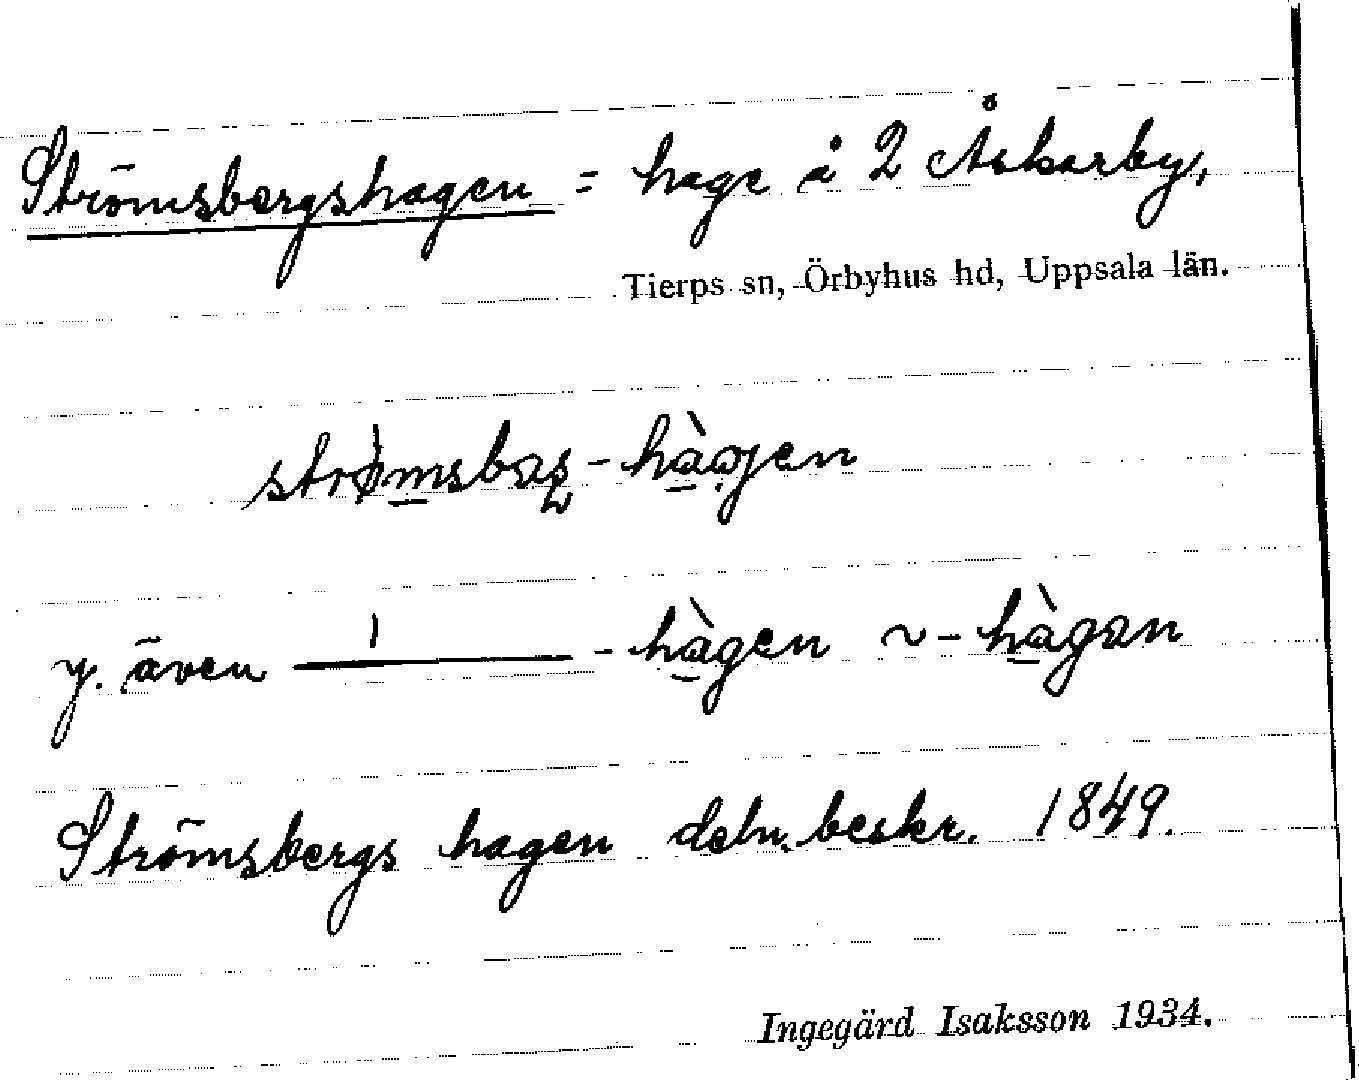 Strömsbergshagen = hage å 2 Åskarby,
Tierps sn, Örbyhus hd, Uppsala län.
y. även — -hàgen ~ -hàgən
Strömsbergs hagen deln.beskr. 1849.
Ingegärd Isaksson 1934.